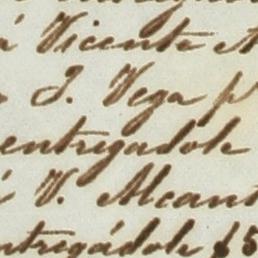 á Vicente A
J. Vega p
entregadole
í V. Alcant
ntregádole $5